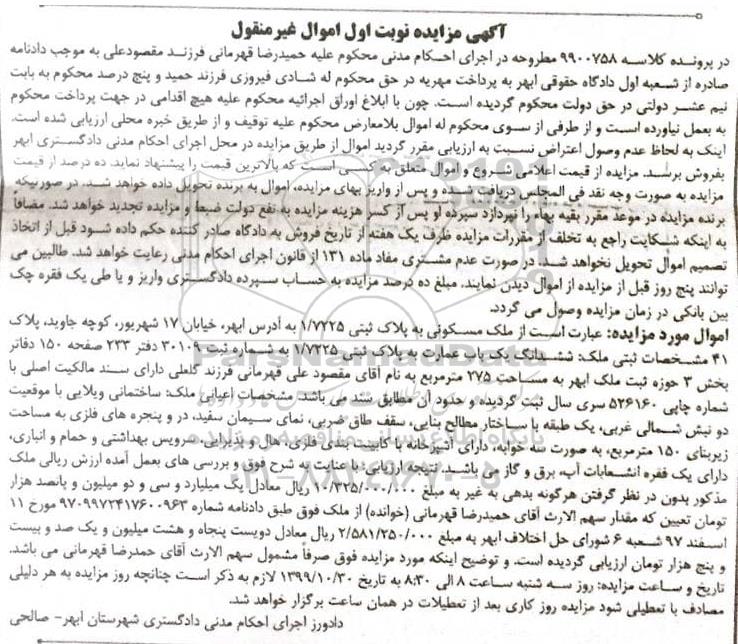 آگهی مزایده نوبت اول اموال غیر منقول
در پرونده کلاسه ۹۹۰۰۷۵۸ مطروحه در اجرای احکام مدنی محکوم علیه حمیدرضا قهرمانی فرزند مقصودعلی به موجب دادنامه
صادره از شعبه اول دادگاه حقوقی ابهر به پرداخت مهریه در حق محکوم له شادی فیروزی فرزند حمید و پنج درصد محکوم به بابت
نیم عشر دولتی در حق دولت محکوم گردیده است. چون با ابلاغ اوراق اجرائیه محکوم علیه هیچ اقدامی در جهت پرداخت محکوم
به بعمل نیاورده است و از طرفی از سوی محکوم له اموال بلامعارض محکوم علیه توقیف و از طریق خبره محلی ارزیابی شده است.
اینک به لحاظ عدم وصول اعتراض نسبت به ارزیابی مقرر گردید اموال از طریق مزایده در محل اجرای احکام مدنی دادگستری ابهر
بفروش برسد. مزایده از قیمت اعلامی شروع و اموال متعلق به کسی است که بالاترین قیمت را پیشنهاد نماید. ده درصد از قیمت
مزایده به صورت وجه نقد فی المجلس دریافت شده و پس از واریز بهای مزایده، اموال به برنده تحویل داده خواهد شد. در صورتیکه
برنده مزایده در موعد مقرر بقیه بهاء را نپردازد سپرده او پس از کسر هزینه مزایده به نفع دولت ضبط و مزایده تجدید خواهد شد. مضافاً
به اینکه شکایت راجع به تخلف از مقررات مزایده ظرف یک هفته از تاریخ فروش به دادگاه صادر کننده حکم داده شود قبل از اتخاذ
تصمیم اموال تحویل نخواهد شد. در صورت عدم مشتری مفاد ماده ۱۳۱ از قانون اجرای احکام مدنی رعایت خواهد شد. طالبین می
توانند پنج روز قبل از مزایده از اموال دیدن نمایند. مبلغ ده درصد مزایده به حساب سپرده دادگستری واریز و یا طی یک فقره چک
بین بانکی در زمان مزایده وصول می گردد.
اموال مورد مزایده: عبارت است از ملک مسکونی به پلاک ثبتی ۱/۷۲۲۵ به آدرس ابهر، خیابان ۱۷ شهریور، کوچه جاوید، پلاک
۴۱ مشخصات ثبتی ملک: ششدانگ یک باب عمارت به پلاک ثبتی ۱/۷۲۲۵ به شماره ثبت ۳۰۱۰۹ دفتر ۲۳۳ صفحه ۱۵۰ دفاتر
بخش ۳ حوزه ثبت ملک ابهر به مساحت ۲۷۵ مترمربع به نام آقای مقصود علی قهرمانی فرزند گلعلی دارای سند مالکیت اصلی با
شماره چاپی ۵۲۶۱۶۰ سری سال ثبت گردیده و حدود آن مطابق سند می باشد. مشخصات اعیانی ملک: ساختمانی ویلایی با موقعیت
دو نبش شمالی غربی، یک طبقه با ساختار مصالح بنایی، سقف طاق ضربی، نمای سیمان سفید، در و پنجره های فلزی به مساحت
زیربنای ۱۵۰ مترمربع، به صورت سه خوابه، دارای آشپزخانه با کابینت بندی فلزی، هال و پذیرایی، سرویس بهداشتی و حمام و انباری،
دارای یک فقره انشعابات آب، برق و گاز می باشد. نتیجه ارزیابی: با عنایت به شرح فوق و بررسی های بعمل آمده ارزش ریالی ملک
مذکور بدون در نظر گرفتن هرگونه بدهی به غیر به مبلغ ۱۰/۳۲۵/۰۰۰/۰۰۰ ریال معادل یک میلیارد و سی و دو میلیون و پانصد هزار
تومان تعیین که مقدار سهم الارث آقای حمیدرضا قهرمانی (خوانده) از ملک فوق طبق دادنامه شماره ۹۷۰۹۹۷۲۴۱۷۶۰۰۹۶۳ مورخ ۱۱
اسفند ۹۷ شعبه ۶ شورای حل اختلاف ابهر به مبلغ ۲/۵۸۱/۲۵۰/۰۰۰ ریال معادل دویست پنجاه و هشت میلیون و یک صد و بیست
و پنج هزار تومان ارزیابی گردیده است. و توضیح اینکه مورد مزایده فوق صرفاً مشمول سهم الارث آقای حمدرضا قهرمانی می باشد.
تاریخ و ساعت مزایده: روز سه شنبه ساعت ۸ الی ۸:۳۰ به تاریخ ۱۳۹۹/۱۰/۳۰ لازم به ذکر است چنانچه روز مزایده به هر دلیلی
مصادف با تعطیلی شود مزایده روز کاری بعد از تعطیلات در همان ساعت برگزار خواهد شد.
دادورز اجرای احکام مدنی دادگستری شهرستان ابهر- صالحی